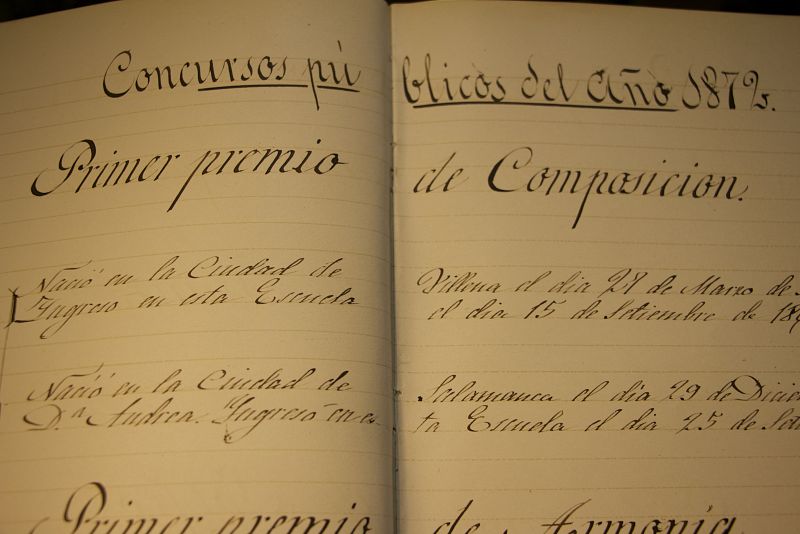 Concursos públicos del Año 1872.
Primer premio de Composicion.
Nació en la Ciudad de Villena el dia 27 de Marzo de
Ingreso en esta Escuela el dia 15 de Setiembre de 18
Nació en la Ciudad de Salamanca el dia 29 de Dicie
D.ª Andrea. Ingresó en esta Escuela el dia 25 de Set
Primer premio de Armonia